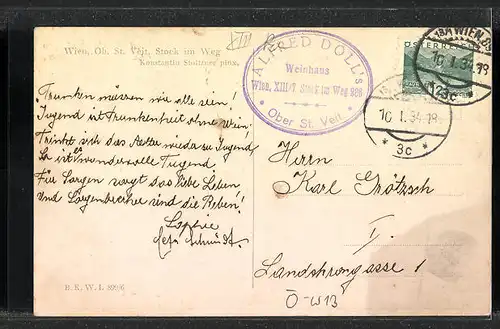 Wien, Ob. St. Veit, Stock im Weg
Konstantin Stoitzner pinx.
XIII
ALFRED DOLL's
Weinhaus
Wien, XIII/1 Stock im Weg 286
Ober St. Veit
ÖSTERREICH
WIEN
10.I.34.18
*12 3c*
10.I.34.18
* 3c *
Trunken müssen wir alle sein!
Jugend ist Trunkenheit ohne Wein
Trinkt sich das Alter wieder zu Jugend
So ist wundervolle Tugend
Für Sorgen sorgt das liebe Leben
Und Sorgenbrecher sind die Reben!
Sophie
Herrn
Karl Grötzsch
I.
Landskrongasse 1
Ö-W13
B.K.W.I.